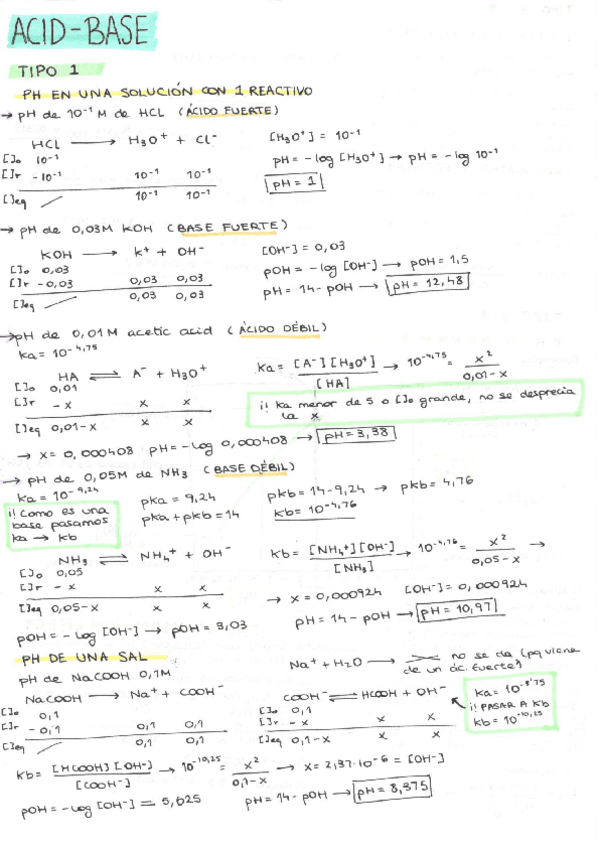 ACID-BASE
TIPO 1
PH EN UNA SOLUCIÓN CON 1 REACTIVO
→ pH de 10⁻¹ M de HCL (ÁCIDO FUERTE)
HCL ⟶ H₃O⁺ + Cl⁻
[]₀ 10⁻¹
[]r -10⁻¹ 10⁻¹ 10⁻¹
[]eq 10⁻¹ 10⁻¹
[H₃O⁺] = 10⁻¹
pH = -log [H₃O⁺] → pH = -log 10⁻¹
pH = 1
→ pH de 0,03M KOH (BASE FUERTE)
KOH ⟶ K⁺ + OH⁻
[]₀ 0,03
[]r -0,03 0,03 0,03
[]eq 0,03 0,03
[OH⁻] = 0,03
pOH = -log [OH⁻] ⟶ pOH = 1,5
pH = 14 - pOH ⟶ pH = 12,48
→ pH de 0,01M acetic acid (ÁCIDO DÉBIL)
Ka = 10⁻⁴,⁷⁵
HA ⇌ A⁻ + H₃O⁺
[]₀ 0,01
[]r -x x x
[]eq 0,01-x x x
Ka = [A⁻][H₃O⁺] / [HA] → 10⁻⁴,⁷⁵ = x² / 0,01-x
¡! Ka menor de 5 o []₀ grande, no se desprecia
la x
→ x = 0,000408 pH = -log 0,000408 → pH = 3,38
→ pH de 0,05M de NH₃ (BASE DÉBIL)
Ka = 10⁻⁹,²⁴
¡! Como es una
base pasamos
Ka → Kb
pKa = 9,24
pKa + pKb = 14
pKb = 14 - 9,24 → pKb = 4,76
Kb = 10⁻⁴,⁷⁶
NH₃ ⇌ NH₄⁺ + OH⁻
[]₀ 0,05
[]r -x x x
[]eq 0,05-x x x
Kb = [NH₄⁺][OH⁻] / [NH₃] → 10⁻⁴,⁷⁶ = x² / 0,05-x →
→ x = 0,000924 [OH⁻] = 0,000924
pOH = -log [OH⁻] → pOH = 3,03
pH = 14 - pOH ⟶ pH = 10,97
PH DE UNA SAL
pH de NaCOOH 0,1M
NaCOOH ⟶ Na⁺ + COOH⁻
[]₀ 0,1
[]r -0,1 0,1 0,1
[]eq 0,1 0,1
Na⁺ + H₂O ⟶ no se da (pq viene
de un ác. fuerte)
COOH⁻ ⇌ HCOOH + OH⁻
[]₀ 0,1
[]r -x x x
[]eq 0,1-x x x
Ka = 10⁻³,⁷⁵
¡! PASAR A Kb
Kb = 10⁻¹⁰,²⁵
Kb = [HCOOH][OH⁻] / [COOH⁻] → 10⁻¹⁰,²⁵ = x² / 0,1-x → x = 2,37·10⁻⁶ = [OH⁻]
pOH = -log [OH⁻] = 5,625
pH = 14 - pOH → pH = 8,375